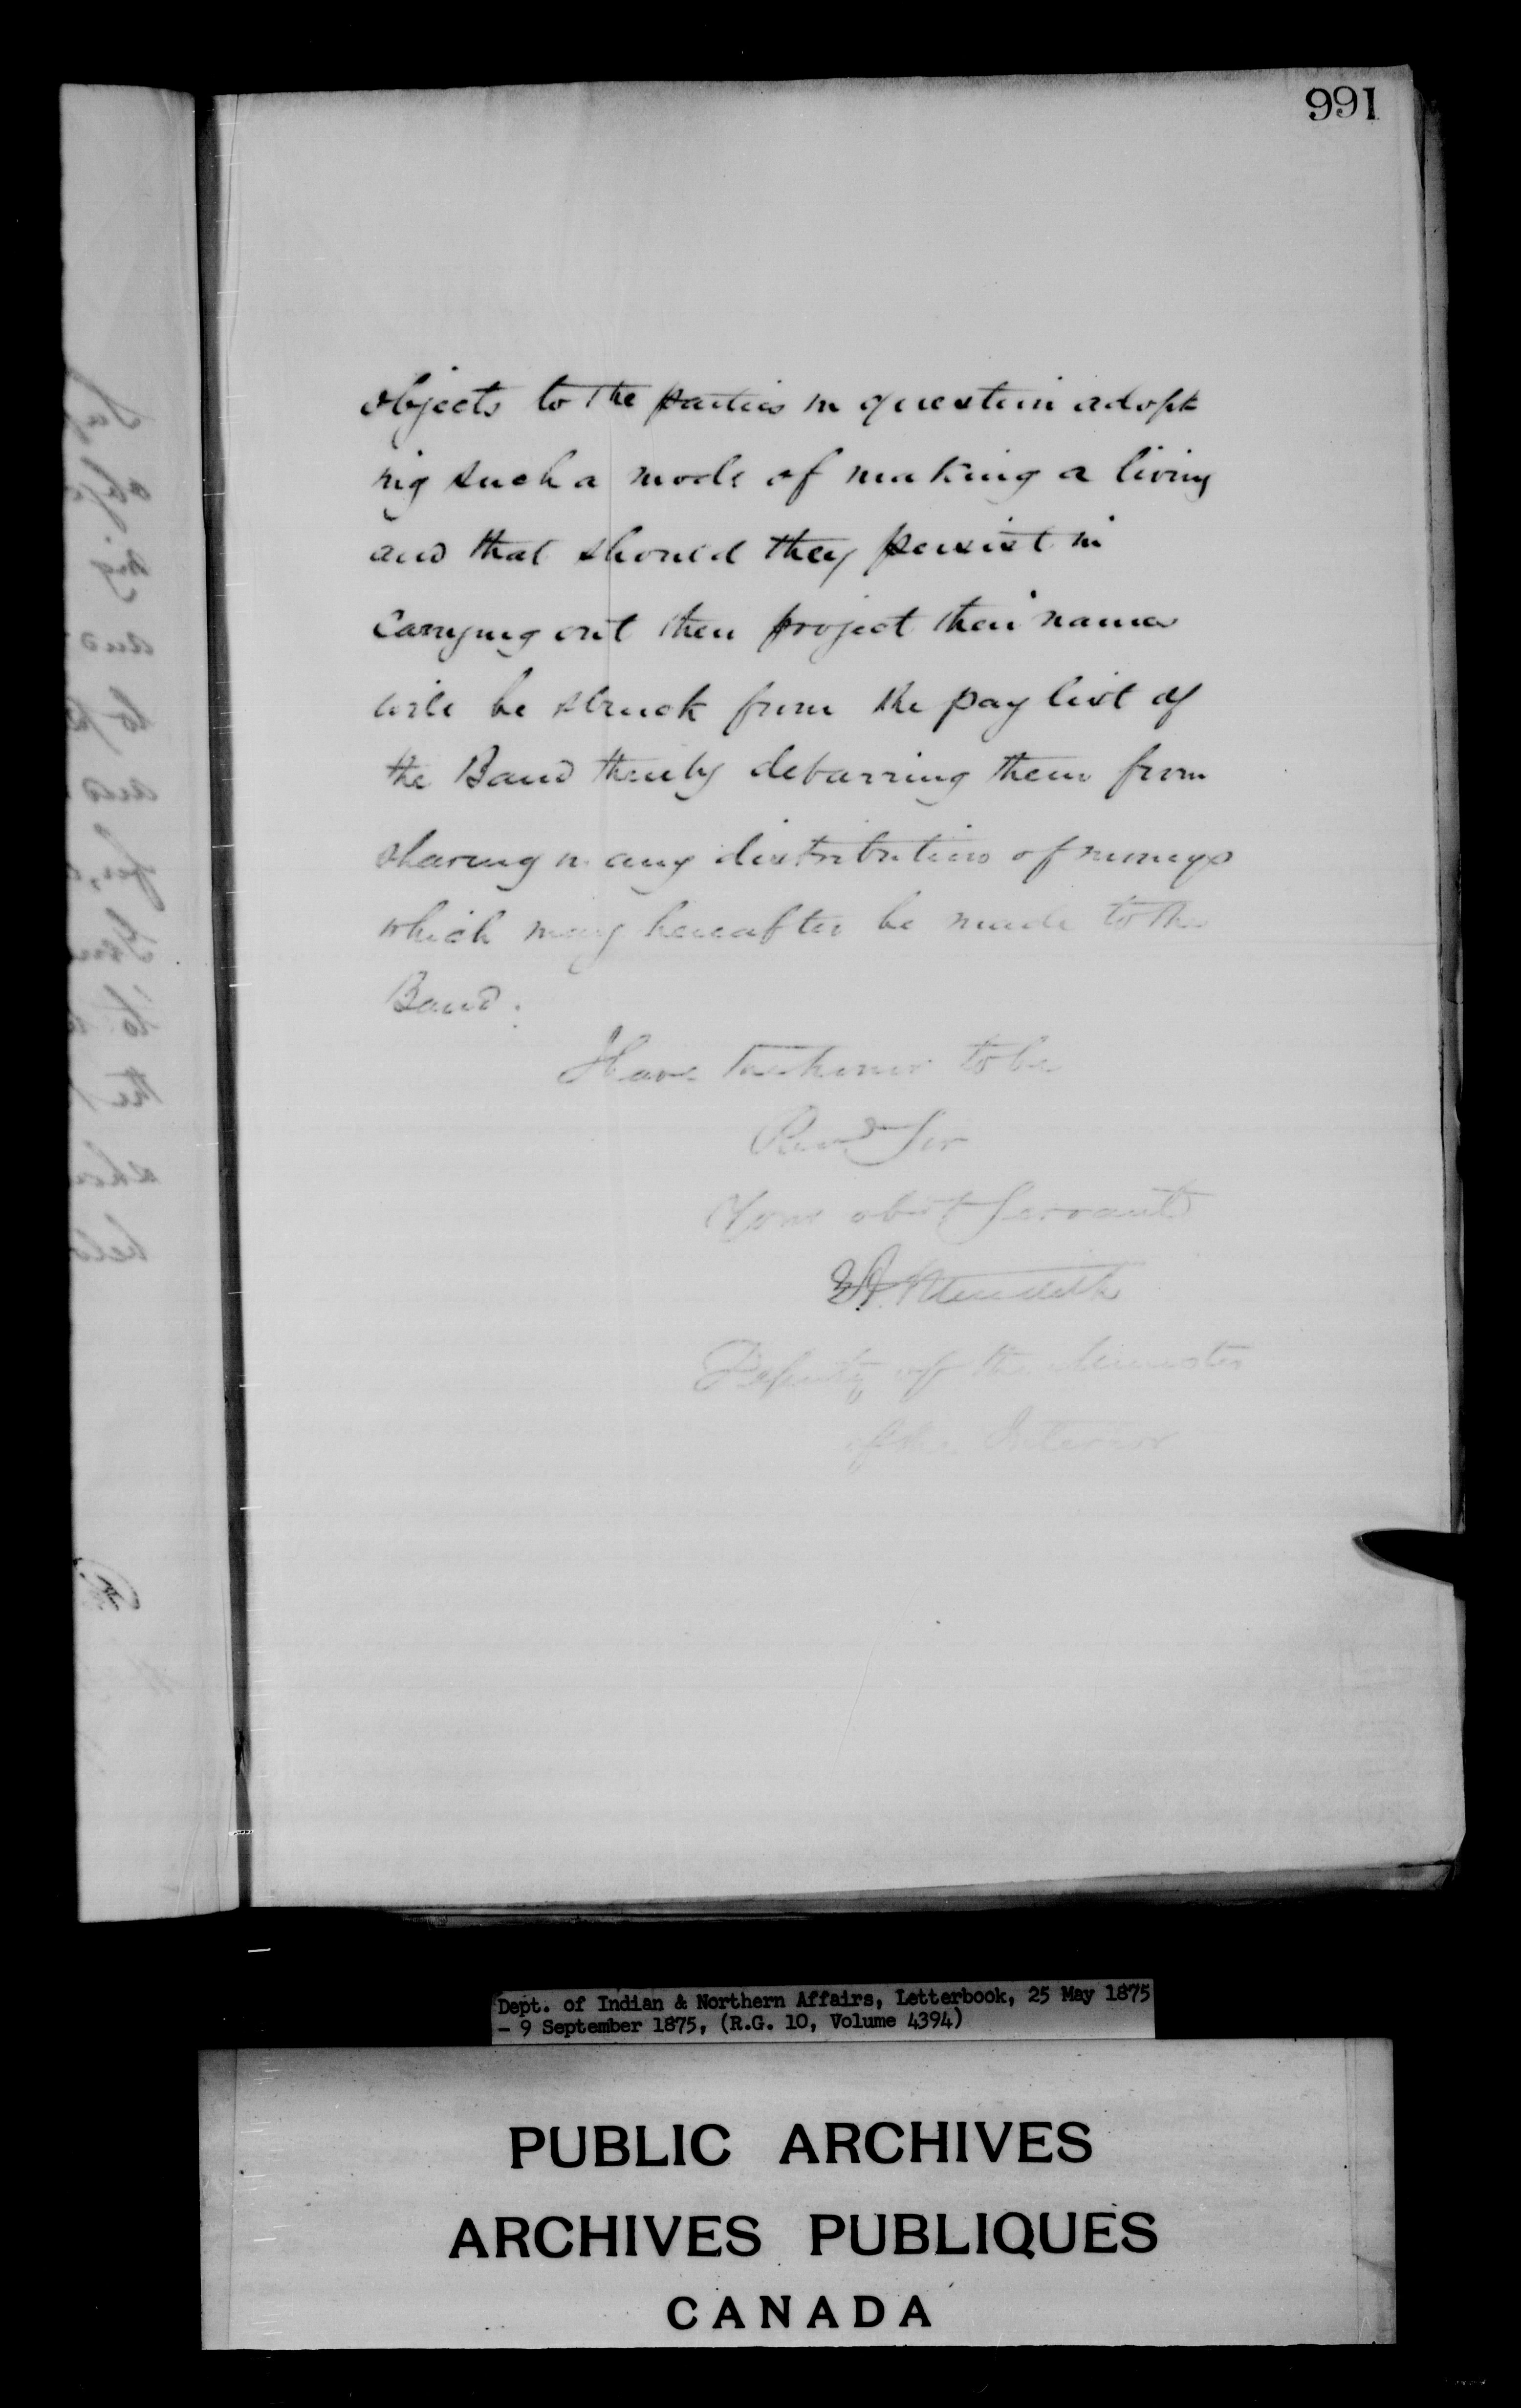 991
objects to the parties in question adopt
ing such a mode of making a living
and that should they persist in
carrying out their project their names
will be struck from the pay list of
the Band thereby debarring them from
sharing in any distribution of moneys
which may hereafter be made to the
Band.
Have the honor to be
Revd Sir
Your obt Servant
E A Meredith
Deputy of the Minister
of the Interior
Dept. of Indian & Northern Affairs, Letterbook, 25 May 1875
- 9 September 1875, (R.G. 10, Volume 4394)
PUBLIC ARCHIVES
ARCHIVES PUBLIQUES
CANADA